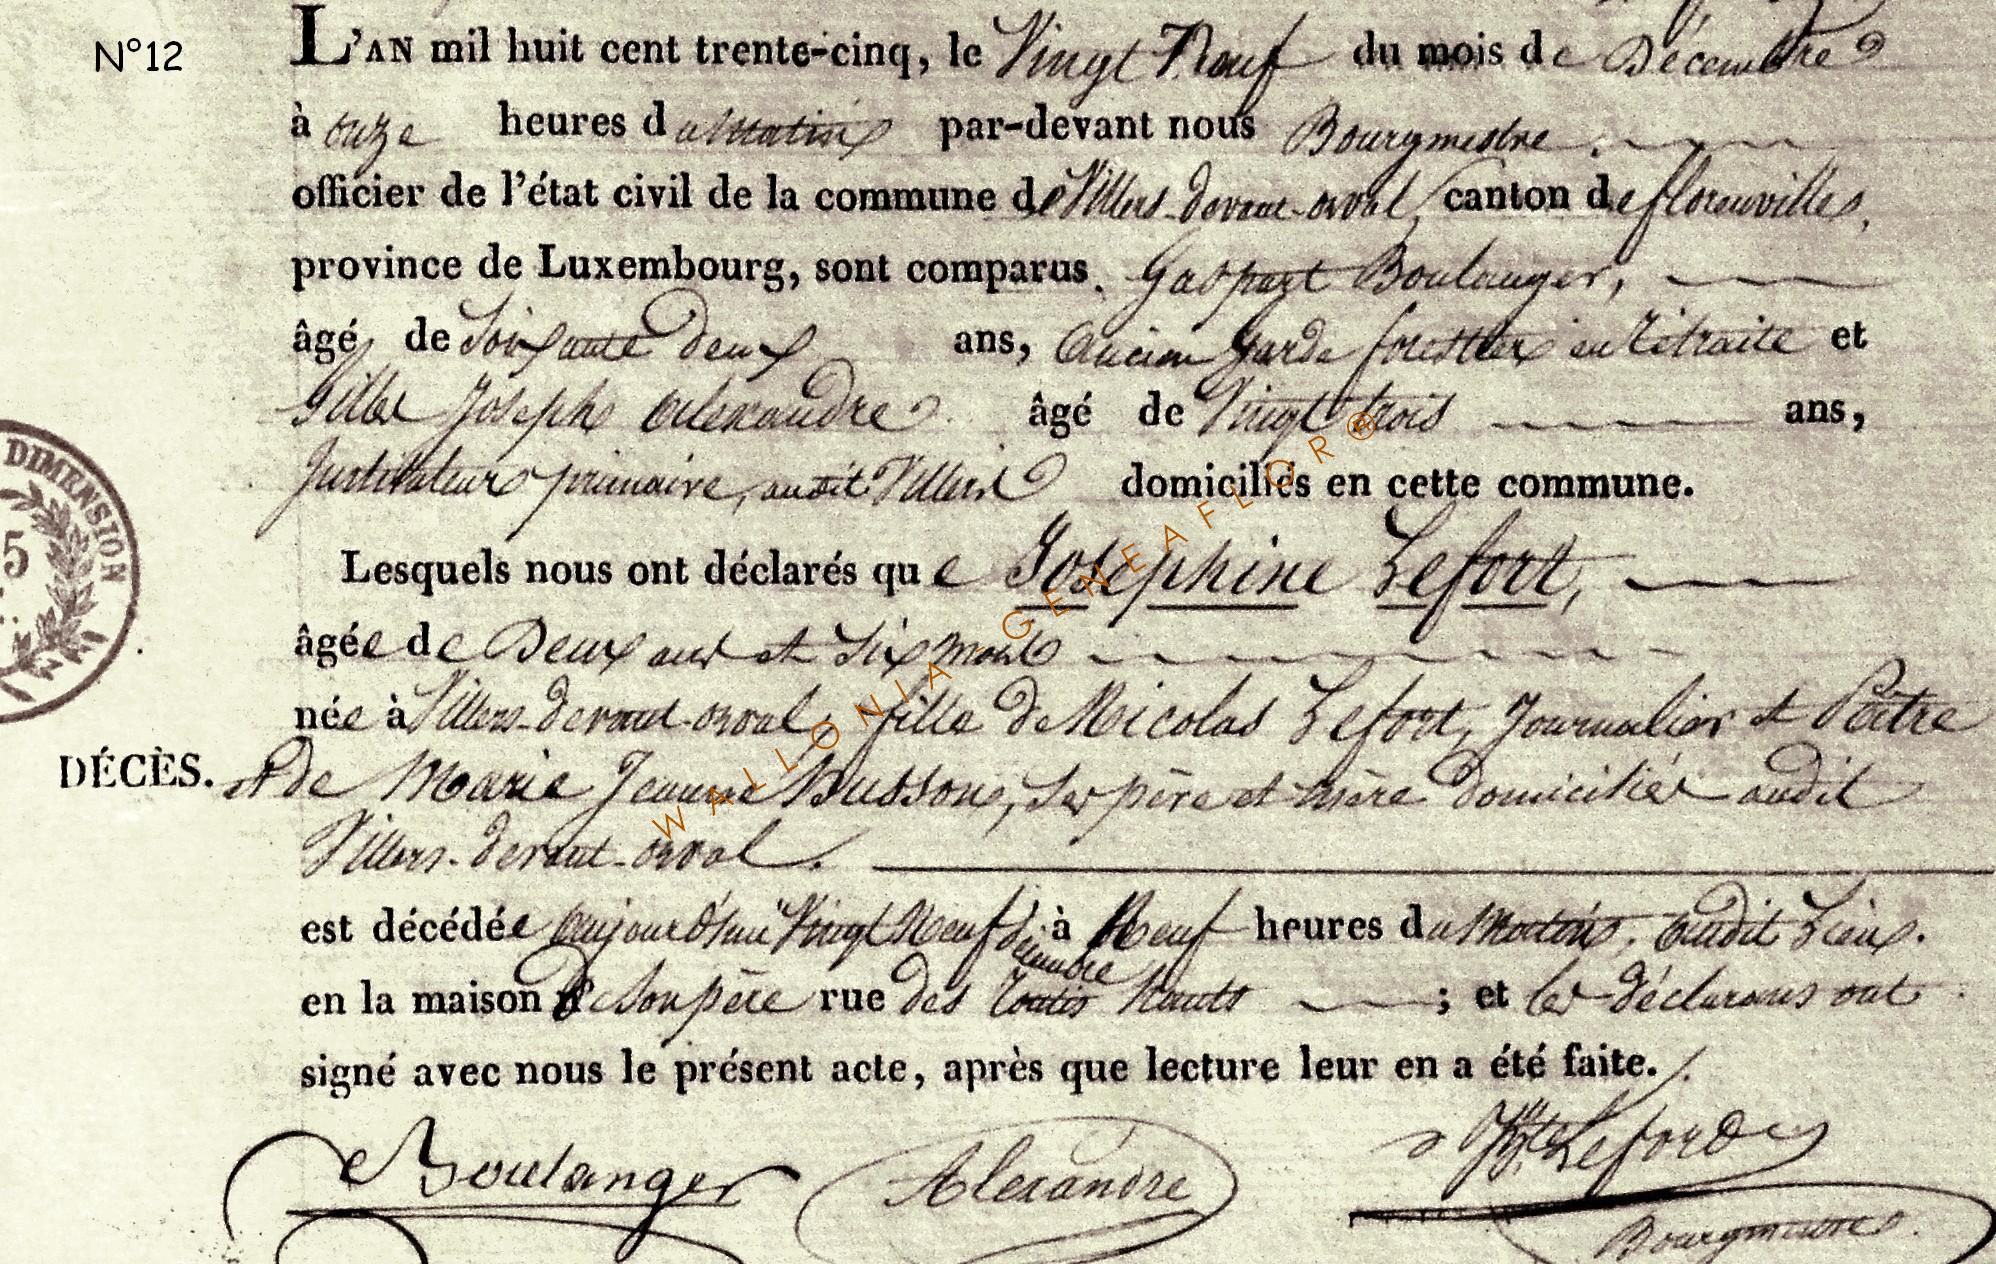 N°12
L'AN mil huit cent trente-cinq, le Vingt Neuf du mois de Décembre
à onze heures du Matin par-devant nous Bourgmestre
officier de l'état civil de la commune de Villers-devant-orval, canton de florenville,
province de Luxembourg, sont comparus. Gaspart Boulanger,
âgé de Soixante deux ans, Ancien Garde forestier en Retraite et
Gilles Joseph Alexandre âgé de Vingt trois ans,
Justituteur primaire, audit Villers domiciliés en cette commune.
Lesquels nous ont déclarés que Josephine Lefort,
âgée de Deux ans et Six mois
née à Villers-devant-orval, fille de Nicolas Lefort, Journalier et
DÉCÈS.
et de Marie Jeanne Husson, Ses père et mère domiciliés audit
Villers-devant-orval.
est décédée aujourd'hui Vingt Neuf décembre à Neuf heures du Matin, audit Lieux.
en la maison de Son père rue des hauts ; et les déclarans ont
signé avec nous le présent acte, après que lecture leur en a été faite.
Boulanger Alexandre Lefort
Bourgmestre
DIMENSION
5
WALLONIA GENEAFLOR®